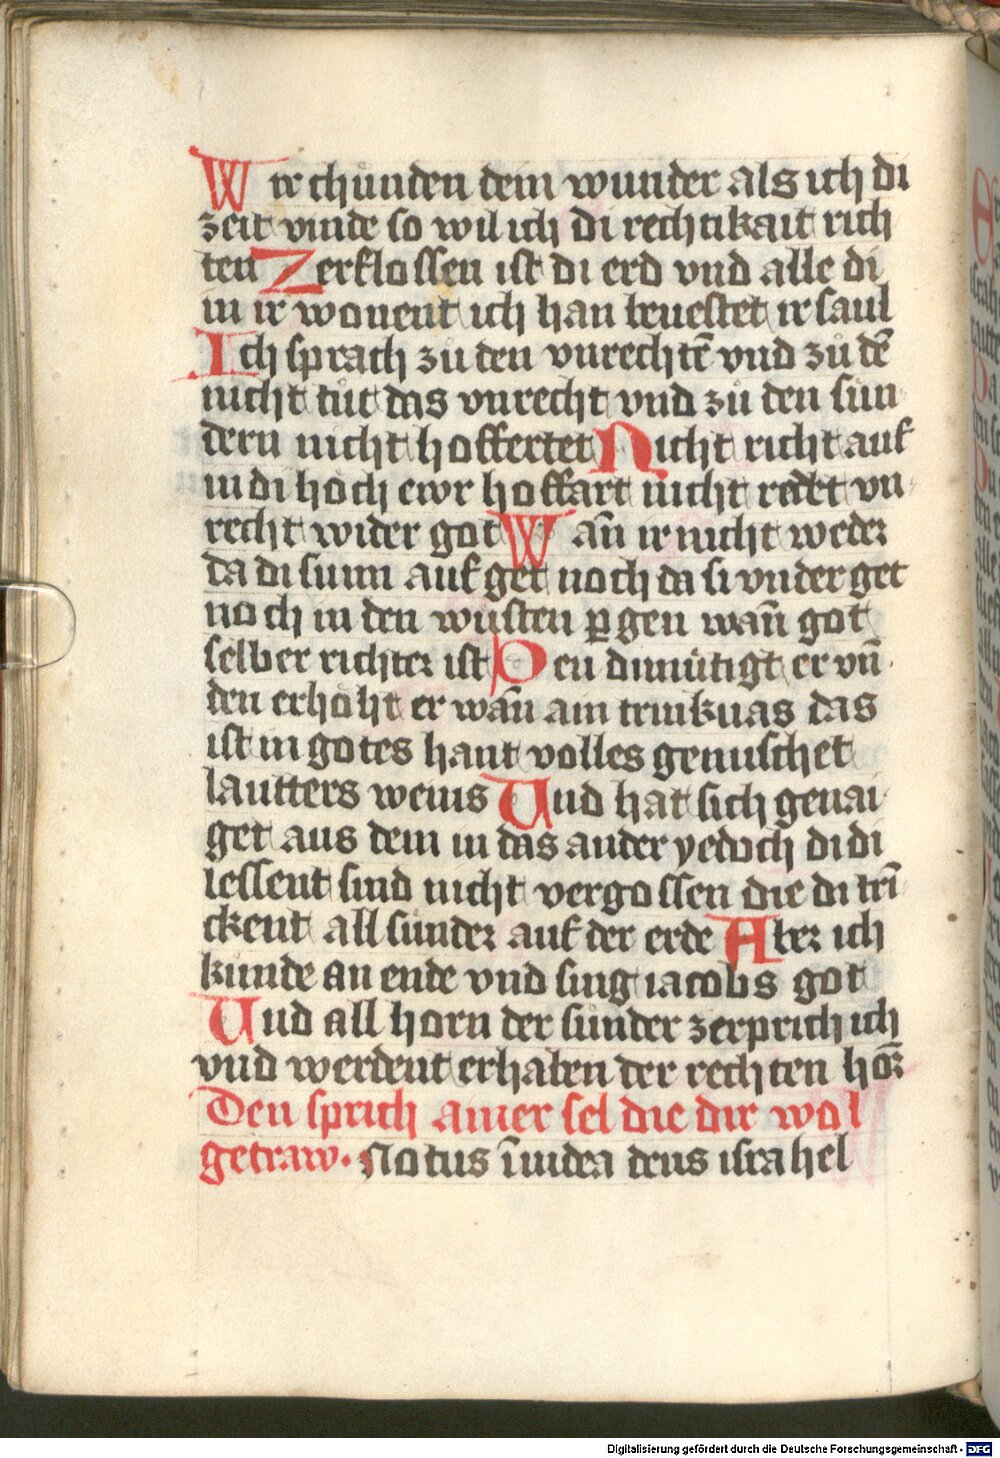 Wir chunden dein wunder als ich di
zeit vinde so wil ich di rechtikait rich
ten Zerflossen ist di erd vnd alle di
in ir wonent ich han bevestet ir saul
Ich sprach zů den vnrechtē vnd zů dē
nicht tůt das vnrecht vnd zů den sün
dern nicht hoffertet Nicht richt auf
in di höch ewr hoffart nicht redet vn
recht wider got Wañ ir nicht weder
da di sunn auf get noch da si vnder get
noch in den wüsten pergen wañ got
selber richter ist Den dimütigt er vñ
den erhöht er wañ ain trinkuas das
ist in gotes hant volles gemischet
lautters weins Und hat sich genai
get aus dem in das ander yedoch di di
iessent sind nicht vergossen die di tri
ckent all sünder auf der erde Aber ich
künde an ende vnd sing iacobs got
Und all horn der sünder zerprich ich
vnd werdent erhaben der rechten hör
Den sprich ainer sel die dir wol
getraw. Notus ī iudea deus israhel
Digitalisierung gefördert durch die Deutsche Forschungsgemeinschaft - DFG